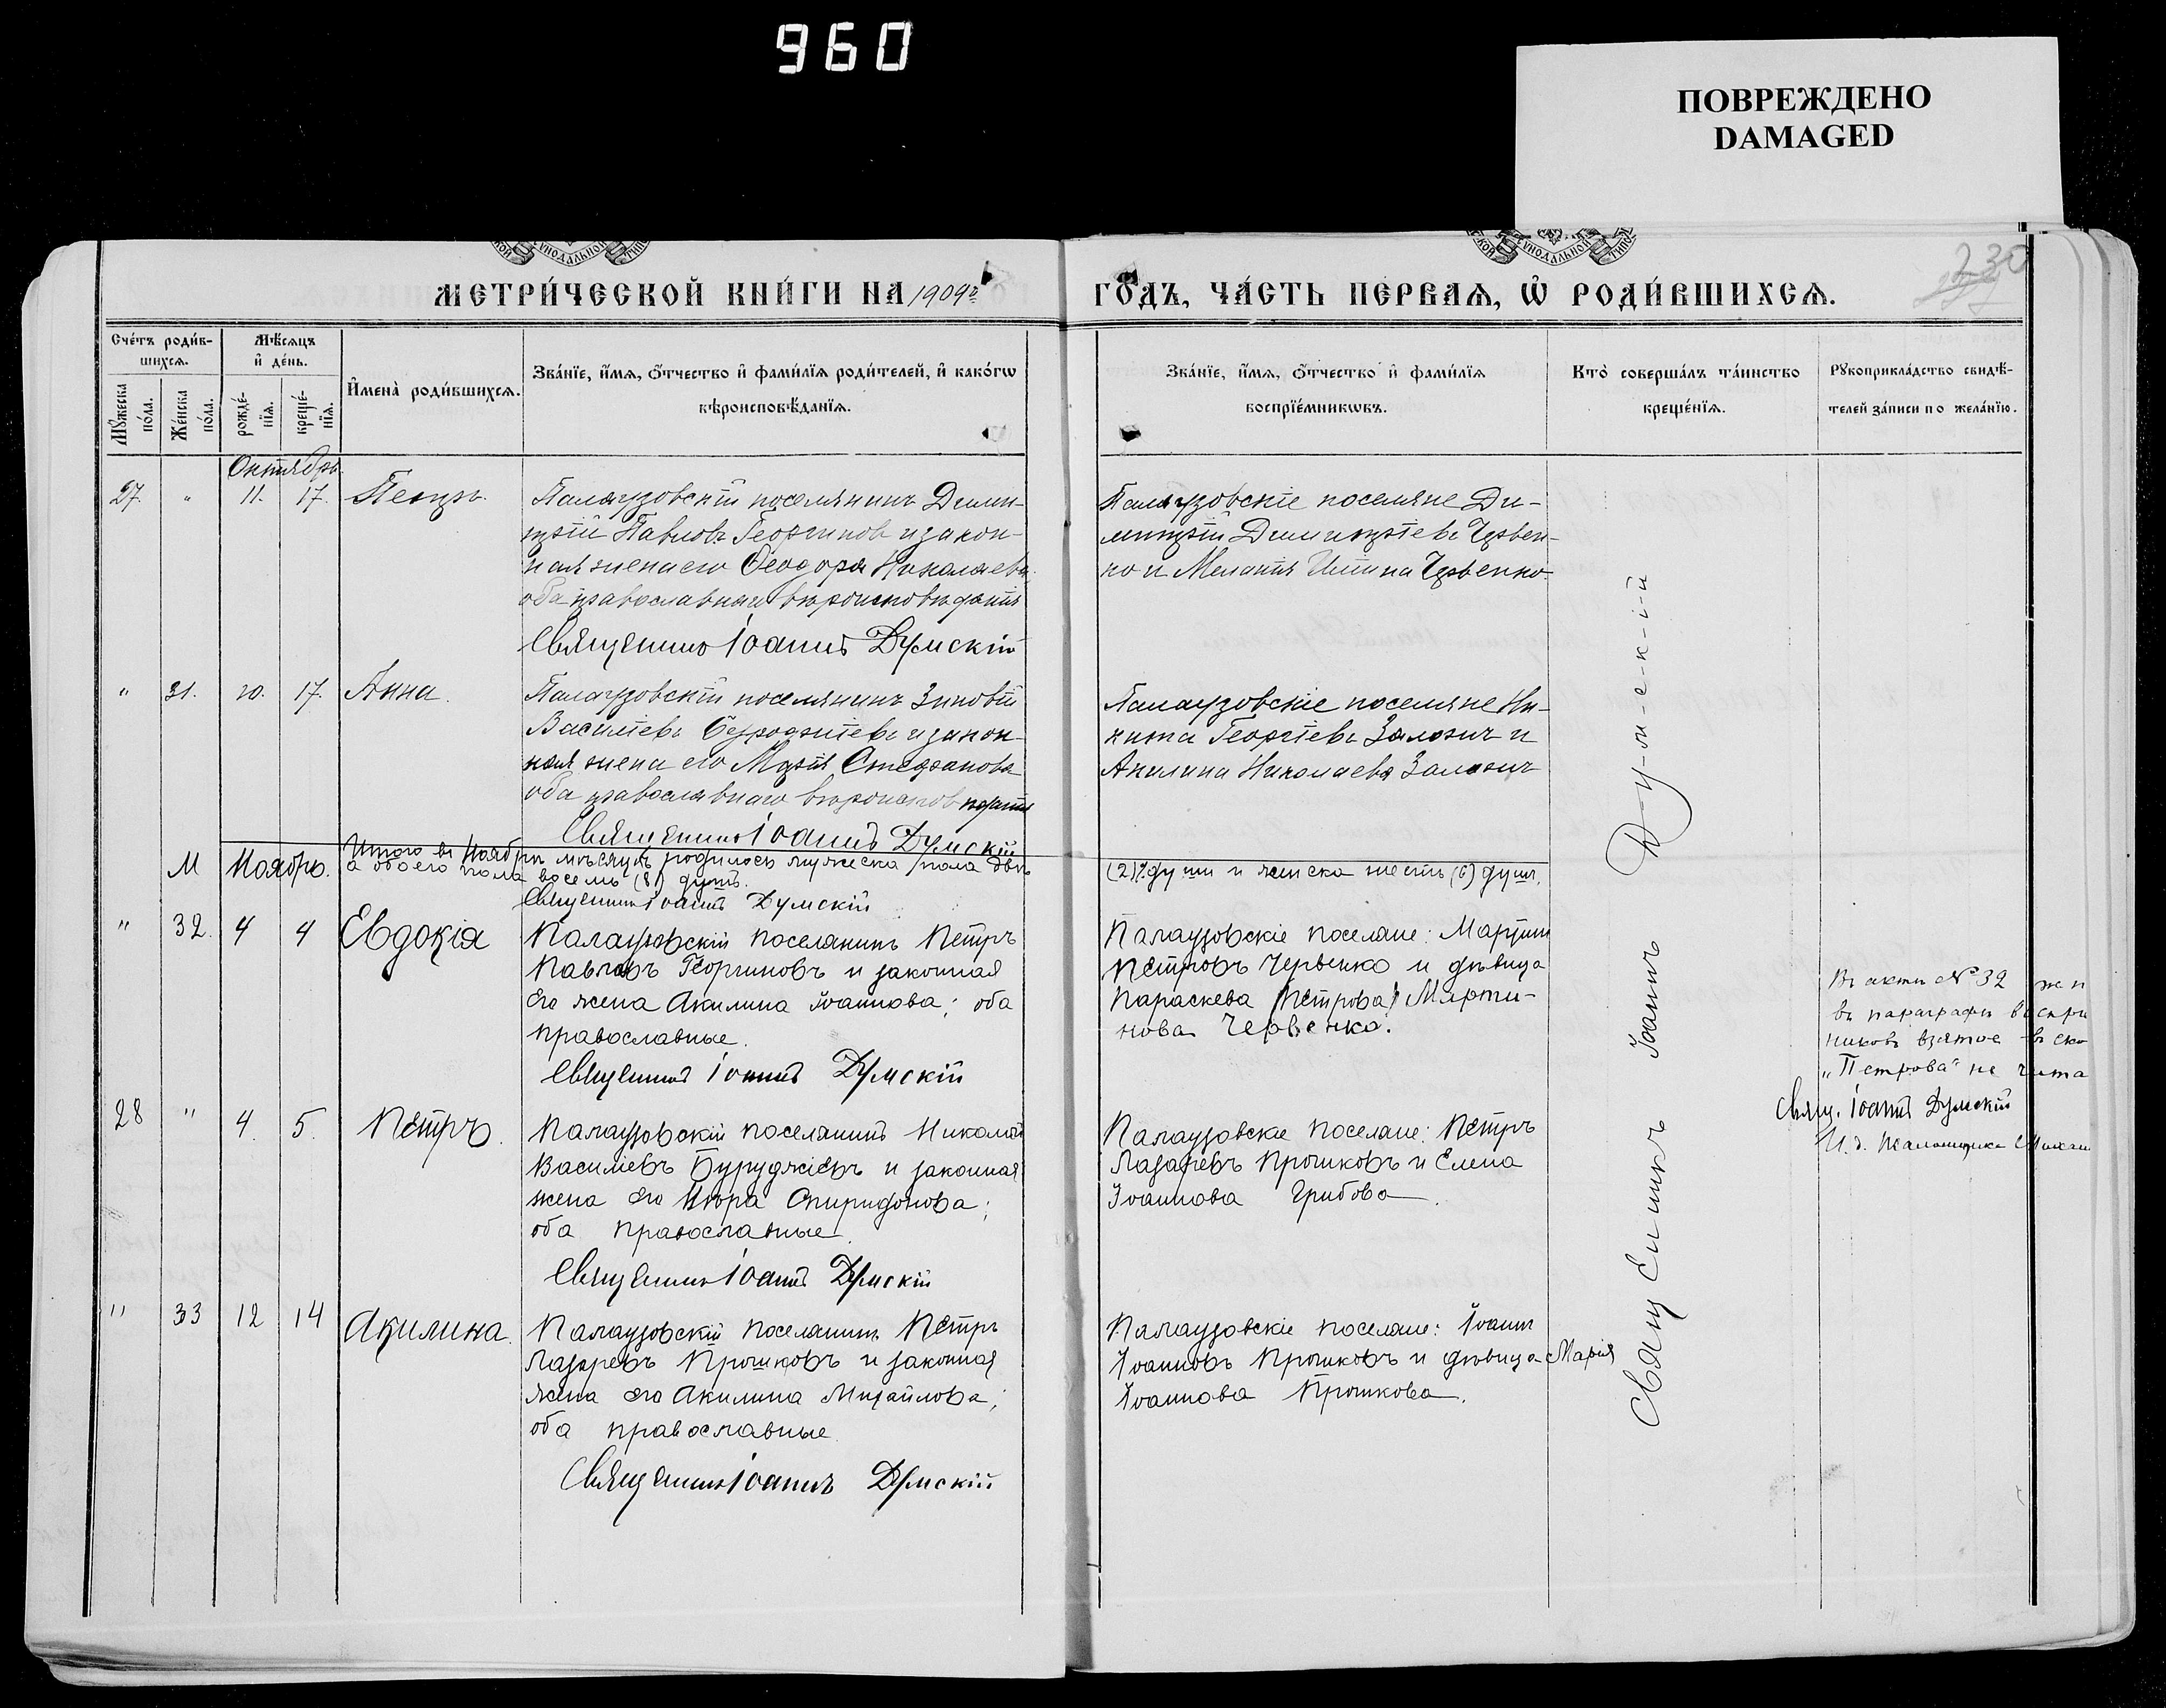 960
ПОВРЕЖДЕНО
DAMAGED
230
МЕТРИ́ЧЕСКОЙ КНИ́ГИ НА 1909 г
ГО́ДЪ, ЧА́СТЬ ПЕ́РВАЯ, Ѡ҆ РОДИ́ВШИХСЯ.
Сче́тъ роди́в-
шихся.
Мѣ́сяцъ
и҆ де́нь.
Мꙋ́жеска по́ла.
Же́нска по́ла.
рожде́-нїя.
креще́-нїя.
И҆мена̀ роди́вшихся.
Зва́нїе, и҆́мя, ѻ҆́тчество и҆ фами́лїя роди́телей, и҆ како́гѡ
вѣроисповѣ́данїя.
Зва́нїе, и҆́мя, ѻ҆́тчество и҆ фами́лїя
воспрїе́мникѡвъ.
Кто̀ соверша́лъ та́инство
креще́нїя.
Рꙋкоприкла́дство свидѣ́-
телей за́писи по жела́нїю.
Октябрь
27. " 11. 17. Петръ.
Палаузовскій поселянинъ Дими-
трій Павловъ Георгиновъ и закон-
ная жена его Ѳеодора Николаева
оба православнаго вѣроисповѣданія
Священникъ Іоаннъ Думскій
Палаузовскіе поселяне Ди-
митрій Димитріевъ Червен-
ко и Меланія Червенко
" 31. 10. 17. Анна.
Палаузовскій поселянинъ Зиновій
Василіевъ Буроджіевъ и закон-
ная жена его Марія Стефанова
оба православнаго вѣроисповѣданія
Священникъ Іоаннъ Думскій
Палаузовскіе поселяне Ни-
кита Георгіевъ Заложъ и
Акилина Николаева Заложъ
Итого въ Ноябрѣ мѣсяцѣ родилось мужеска пола двѣ
(2) души и женска шесть (6) душъ,
М Ноябрь.
а обоего пола восемь (8) душъ.
Священникъ Іоаннъ Думскій
" 32. 4 4 Евдокія
Палаузовскій поселянинъ Петръ
Павловъ Георгиновъ и законная
его жена Акилина Іоаннова; оба
православные.
Священникъ Іоаннъ Думскій
Палаузовскіе поселяне: Мартинъ
Петровъ Червенко и дѣвица
Параскева (Петрова) Марти-
нова Червенко.
Въ актѣ № 32 же н
въ параграфѣ воспри
никовъ взятое въ ско
„Петрова" не чита
Свящ. Іоаннъ Думскій
И. д. Псаломщика Михаи
28 " 4. 5. Петръ.
Палаузовскій поселянинъ Николай
Василіевъ Буруджіевъ и законная
жена его Спиридонова;
оба православные.
Священникъ Іоаннъ Думскій
Палаузовскіе поселяне: Петръ
Лазаревъ Прошковъ и Елена
Іоаннова Грибова.
" 33 12 14 Акилина.
Палаузовскій поселянинъ Петръ
Лазаревъ Прошковъ и законная
жена его Акилина Михайлова;
оба православные.
Священникъ Іоаннъ Думскій
Палаузовскіе поселяне: Іоаннъ
Іоанновъ Прошковъ и дѣвица Марія
Іоаннова Прошкова.
Священникъ Іоаннъ Д-у-м-с-к-і-й